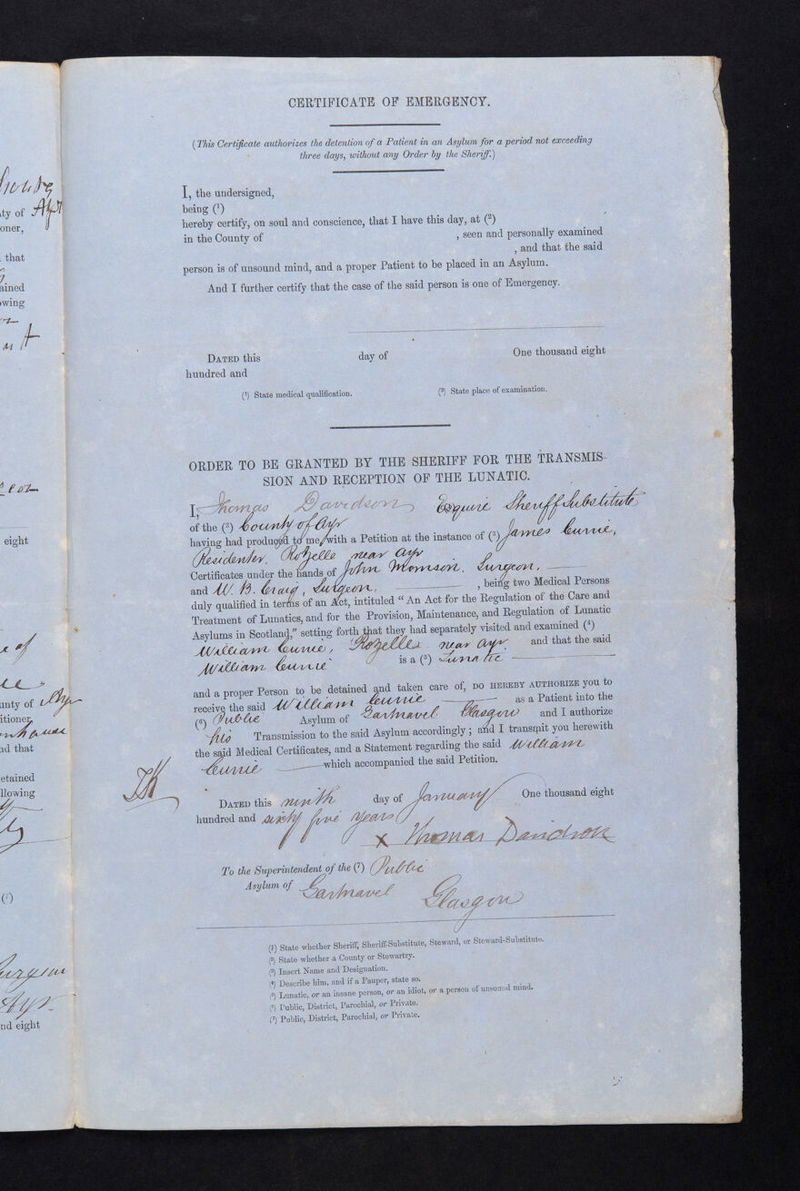 CERTIFICATE OF EMERGENCY.
(This Certificate authorizes the detention of a Patient in an Asylum for a period not exceeding
three days, without any Order by the Sheriff.)
I, the undersigned,
being (1)
hereby certify, on soul and conscience, that I have this day, at (2)
in the County of , seen and personally examined
, and that the said
person is of unsound mind, and a proper Patient to be placed in an Asylum.
And I further certify that the case of the said person is one of Emergency.
DATED this day of One thousand eight
hundred and
(1) State medical qualification. (2) State place of examination.
ORDER TO BE GRANTED BY THE SHERIFF FOR THE TRANSMIS-
SION AND RECEPTION OF THE LUNATIC.
I, Thomas Davidson Esquire Sheriff Substitute
of the (2) County of Ayr
having had produced to me, with a Petition at the instance of (3) James Currie,
Residenter, Rozelle near Ayr
Certificates under the hands of John Morrison, Surgeon,
and W. B. Craig, Surgeon, , being two Medical Persons
duly qualified in terms of an Act, intituled "An Act for the Regulation of the Care and
Treatment of Lunatics, and for the Provision, Maintenance, and Regulation of Lunatic
Asylums in Scotland," setting forth that they had separately visited and examined (4)
William Currie, Rozelle near Ayr, and that the said
William Currie is a (5) Lunatic
and a proper Person to be detained and taken care of, DO HEREBY AUTHORIZE you to
receive the said William Currie as a Patient into the
(6) Public Asylum of Gartnavel Glasgow and I authorize
his Transmission to the said Asylum accordingly; and I transmit you herewith
the said Medical Certificates, and a Statement regarding the said William
Currie which accompanied the said Petition.
DATED this ninth day of January One thousand eight
hundred and sixty five years
x Thomas Davidson
To the Superintendent of the (7) Public
Asylum of Gartnavel Glasgow
(1) State whether Sheriff, Sheriff-Substitute, Steward, or Steward-Substitute.
(2) State whether a County or Stewartry.
(3) Insert Name and Designation.
(4) Describe him, and if a Pauper, state so.
(5) Lunatic, or an insane person, or an idiot, or a person of unsound mind.
(6) Public, District, Parochial, or Private.
(7) Public, District, Parochial, or Private.
ty of Ayr
oner,
that
ained
owing
eight
unty of Ayr
itioner
nd that
etained
llowing
nd eight